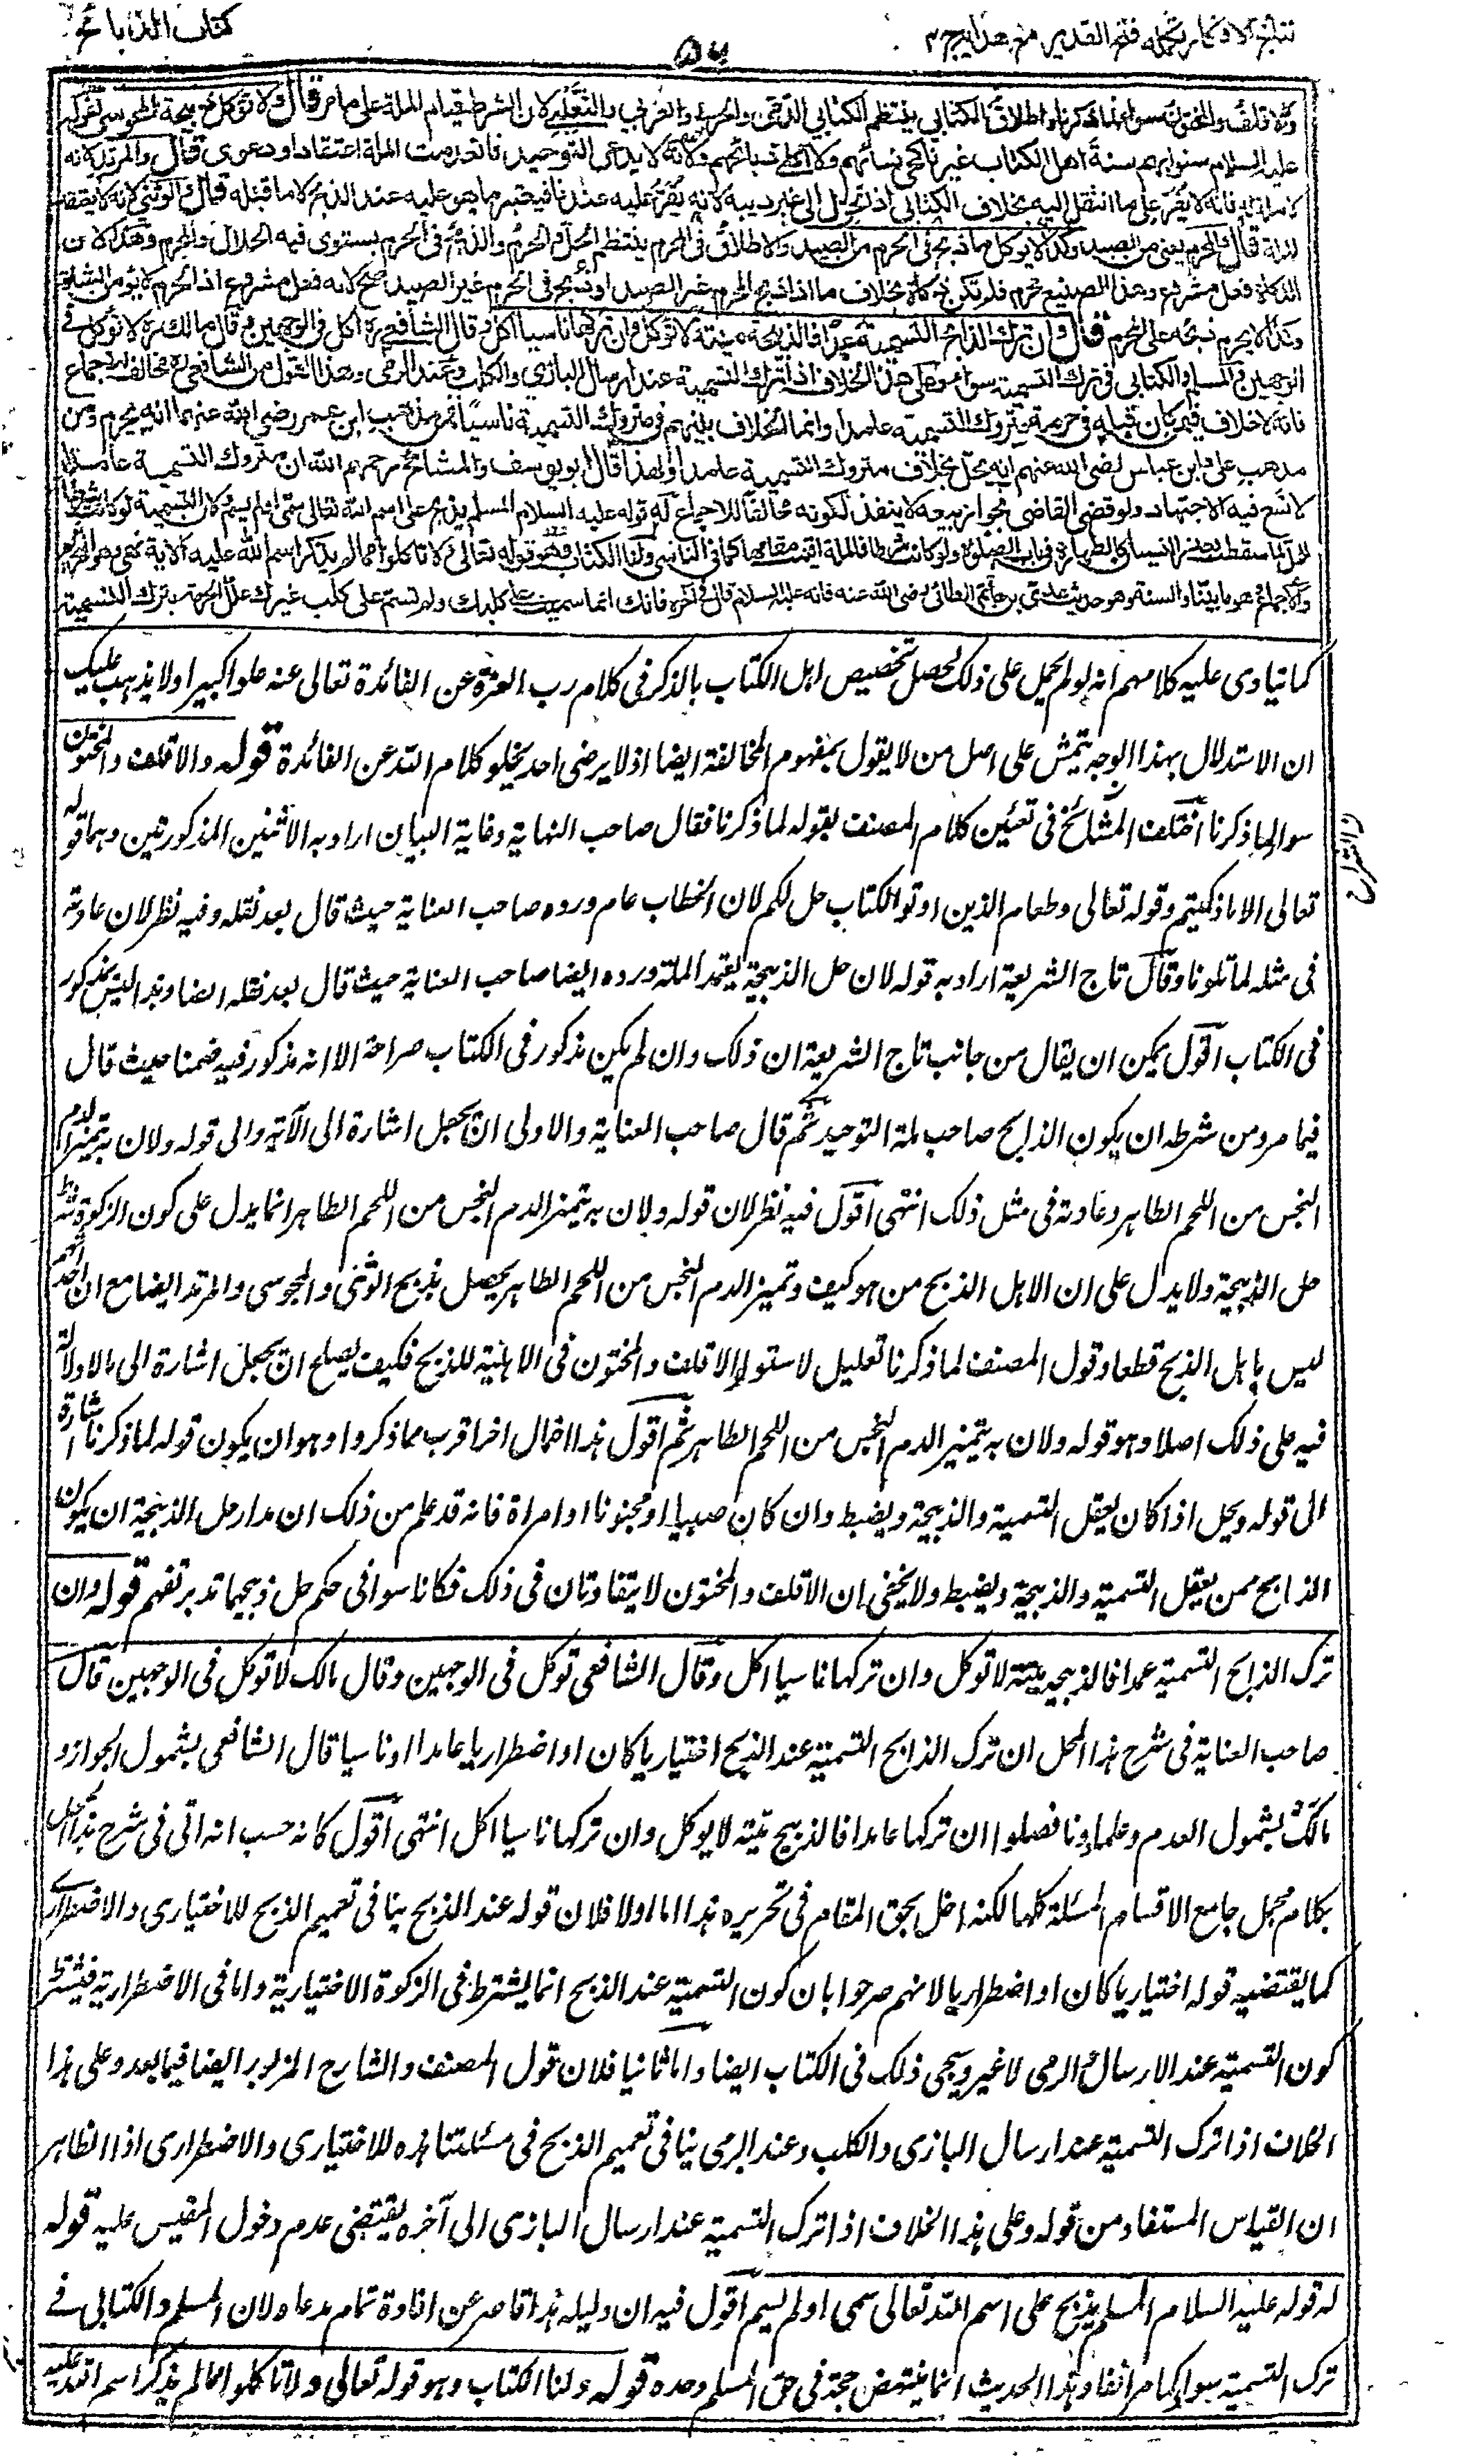 نتائج الافكار تكمله فتح القدير مع هدايه ج ٤
٥٤
كتاب الذبائح
والاقلف والمختون سواء لما ذكرنا واطلاق الكتابي ينتظم الكتابي الذمي والحربي والعربي والتغلبي لان الشرط قيام الملة على ما مر قال ولا توكل ذبيحة المجوسي لقوله
عليه السلام سنوا بهم سنة اهل الكتاب غير ناكحي نسائهم ولا آكلي ذبائحهم ولانه لا يدعي التوحيد فانعدمت الملة اعتقادا ودعوى قال والمرتد لانه
لا ملة له فانه لا يقر على ما انتقل اليه بخلاف الكتابي اذا تحول الى غير دينه لانه يقر عليه عندنا فيعتبر ما هو عليه عند الذبح لا ما قبله قال والوثني لانه لا يعتقد
الملة قال والمحرم يعني من الصيد وكذا لا يوكل ما ذبح في الحرم من الصيد والاطلاق في المحرم ينتظم الحل والحرم والذبح في الحرم يستوي فيه الحلال والمحرم وهذا لان
الذكاة فعل مشروع وهذا الصنيع محرم فلم تكن ذكاة بخلاف ما اذا ذبح المحرم غير الصيد او ذبح في الحرم غير الصيد صح لانه فعل مشروع اذ الحرم لا يؤمن الشاة
وكذا لا يحرم ذبحه على المحرم قال وان ترك الذابح التسمية عمدا فالذبيحة ميتة لا توكل وان تركها ناسيا اكل وقال الشافعي اكل في الوجهين وقال مالك لا توكل في
الوجهين والمسلم والكتابي في ترك التسمية سواء وعلى هذا الخلاف اذا ترك التسمية عند ارسال البازي والكلب وعند الرمي وهذا القول من الشافعي مخالف للاجماع
فانه لا خلاف فيمن كان قبله في حرمة متروك التسمية عامدا وانما الخلاف بينهم في متروك التسمية ناسيا فمن مذهب ابن عمر رضي الله عنهما انه يحرم ومن
مذهب علي وابن عباس رضي الله عنهم انه يحل بخلاف متروك التسمية عامدا ولهذا قال ابو يوسف والمشائخ رحمهم الله ان متروك التسمية عامدا
لا يسع فيه الاجتهاد ولو قضى القاضي بجواز بيعه لا ينفذ لكونه مخالفا للاجماع له قوله عليه السلام المسلم يذبح على اسم الله تعالى سمى او لم يسم ولان التسمية لو كانت شرطا
للحل لما سقطت بعذر النسيان كالطهارة في باب الصلوة ولو كانت شرطا فالملة اقيمت مقامها كما في الناسي ولنا الكتاب وهو قوله تعالى ولا تاكلوا مما لم يذكر اسم الله عليه الآية نهي وهو للتحريم
والاجماع وهو ما بينا والسنة وهو حديث عدي بن حاتم الطائي رضي الله عنه فانه عليه السلام قال في آخره فانك انما سميت على كلبك ولم تسم على كلب غيرك علل الحرمة بترك التسمية
كما ينادى عليه كلامهم انه لو لم يحمل على ذلك لحصل تخصيص اهل الكتاب بالذكر في كلام رب العزة عن الفائدة تعالى عنه علوا كبيرا ولا يذهب عليك
ان الاستدلال بهذا الوجه يتمشى على اصل من لا يقول بمفهوم المخالفة ايضا اذ لا يرضى احد بخلو كلام الله عن الفائدة قوله والاقلف والمختون
سواء لما ذكرنا اختلف المشائخ في تعيين كلام المصنف بقوله لما ذكرنا فقال صاحب النهاية وغاية البيان اراد به الاثنين المذكورتين وهما قوله
تعالى الا ما ذكيتم وقوله تعالى وطعام الذين اوتوا الكتاب حل لكم لان الخطاب عام ورده صاحب العناية حيث قال بعد نقله وفيه نظر لان عادته
في مثله لما تلونا وقال تاج الشريعة اراد به قوله لان حل الذبيحة يعتمد الملة ورده ايضا صاحب العناية حيث قال بعد نقله ايضا وهذا ليس بمذكور
في الكتاب اقول يمكن ان يقال من جانب تاج الشريعة ان ذلك وان لم يكن مذكور في الكتاب صراحة الا انه مذكور فيه ضمنا حيث قال
فيما مر ومن شرطه ان يكون الذابح صاحب ملة التوحيد ثم قال صاحب العناية والاولى ان يجعل اشارة الى الآية والى قوله ولان به يتميز الدم
النجس من اللحم الطاهر وعادته في مثل ذلك انتهى اقول فيه نظر لان قوله ولان به يتميز الدم النجس من اللحم الطاهر انما يدل على كون الزكوة شرط
حل الذبيحة ولا يدل على ان الاهل الذبح من هو كيف وتميز الدم النجس من اللحم الطاهر يحصل بذبح الوثني والمجوسي والمرتد ايضا مع ان احدا منهم
ليس باهل الذبح قطعا وقول المصنف لما ذكرنا تعليل لاستواء الاقلف والمختون في الاهلية للذبح فكيف يصلح ان يجعل اشارة الى ما لا دلالة
فيه على ذلك اصلا وهو قوله ولان به يتميز الدم النجس من اللحم الطاهر ثم اقول هذا احتمال اخر اقرب مما ذكروا وهو ان يكون قوله لما ذكرنا اشارة
الى قوله ويحل اذا كان يعقل التسمية والذبيحة ويضبط وان كان صبيا او مجنونا او امراة فانه قد علم من ذلك ان مدار حل الذبيحة ان يكون
الذابح ممن يعقل التسمية والذبيحة ويضبط ولا يخفى ان الاقلف والمختون لا يتفاوتان في ذلك فكانا سواء في حكم حل ذبيحهما تدبر تفهم قوله وان
ترك الذابح التسمية عمدا فالذبيحة ميتة لا توكل وان تركها ناسيا اكل وقال الشافعي توكل في الوجهين وقال مالك لا توكل في الوجهين قال
صاحب العناية في شرح هذا المحل ان ترك الذابح التسمية عند الذبح اختياريا كان او اضطراريا عامدا او ناسيا قال الشافعي بشمول الجواز و
مالك بشمول العدم وعلماؤنا فصلوا ان تركها عامدا فالذبيح ميتة لا يوكل وان تركها ناسيا اكل انتهى اقول كانه حسب انه اتى في شرح هذا المحل
بكلام مجمل جامع الاقسام المسئلة كلها لكنه اخل بحق المقام في تحريره هذا اما اولا فلان قوله عند الذبح ينافي تعميم الذبح للاختياري والاضطراري
كما يقتضيه قوله اختياريا كان او اضطراريا لانهم صرحوا بان كون التسمية عند الذبح انما يشترط في الزكوة الاختيارية واما في الاضطرارية فيشترط
كون التسمية عند الارسال والرمي لا غير ويجيء ذلك في الكتاب ايضا واما ثانيا فلان قول المصنف والشارح المزبور ايضا فيما بعد وعلى هذا
الخلاف اذا ترك التسمية عند ارسال البازي والكلب وعند الرمي ينافي تعميم الذبح في مسئلتنا هذه للاختياري والاضطراري اذ الظاهر
ان القياس المستفاد من قوله وعلى هذا الخلاف اذا ترك التسمية عند ارسال البازي الى آخره يقتضي عدم دخول المقيس عليه قوله
له قوله عليه السلام المسلم يذبح على اسم الله تعالى سمى او لم يسم اقول فيه ان دليله هذا قاصر عن افادة تمام مدعاه لان المسلم والكتابي في
ترك التسمية سواء كما مر آنفا وهذا الحديث انما ينتهض حجة في حق المسلم وحده قوله ولنا الكتاب وهو قوله تعالى ولا تاكلوا مما لم يذكر اسم الله عليه